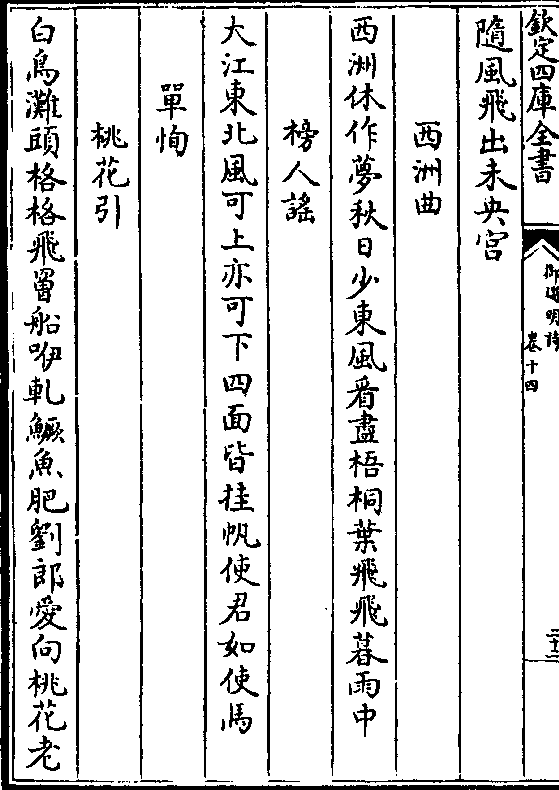 欽定四庫全書
御選明詩
卷十四
隨風飛出未央宫
西洲曲
西洲休作夢秋日少東風看盡梧桐葉飛飛暮雨中
榜人謡
大江東北風可上亦可下四面皆挂帆使君如使馬
單恂
桃花引
白鳥灘頭格格飛罾船咿軋鱖魚肥劉郎愛向桃花老